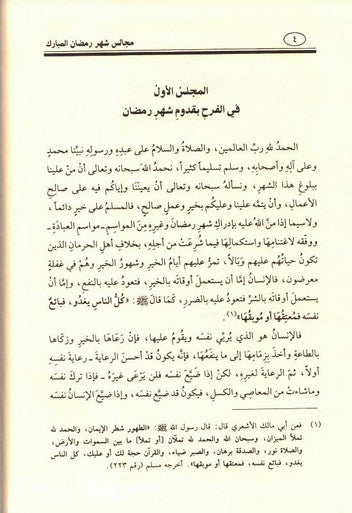 ٤
مجالس شهر رمضان المبارك
المجلس الأول
في الفرح بقدوم شهر رمضان
الحمدُ للهِ ربِّ العالمين، والصلاةُ والسلامُ على عبدِهِ ورسولِهِ نبيِّنا محمدٍ
وعلى آلِهِ وأصحابِهِ، وسلم تسليماً كثيراً، نحمدُ اللهَ سبحانه وتعالى أن منَّ علينا
ببلوغِ هذا الشهرِ، ونسألُه سبحانه وتعالى أن يعينَنَا وإياكُم فيه على صالحِ
الأعمالِ، وأن يتمَّه علينا وعليكم بخيرٍ وعملٍ صالحٍ، فالمسلم على خيرٍ دائماً،
ولاسيما إذا منَّ اللهُ عليه بإدراكِ شهرِ رمضانَ وغيرِه مِنَ المواسِمِ ـ مواسمِ العبادةِ ـ
ووفقَه لاغتنامِهَا واستكمالِهَا فيما شُرِعَتْ من أجلِهِ، بخلافِ أهلِ الحرمانِ الذين
تكونُ حياتُهُم عليهِم وَبَالاً، تمرُّ عليهم أيامُ الخيرِ وشهورُ الخيرِ وهُم في غفلةٍ
معرضون، فالإنسانُ إمَّا أن يستعملَ أوقاتَه بالخيرِ، فتعودُ عليه بالنفعِ، وإمَّا أنْ
يستعملَ أوقاتَه بالشرِّ فتعودُ عليه بالضررِ، كَمَا قالَ ﷺ: «كُلُّ الناسِ يغدُو، فبائعٌ
نفسَه فمُعتِقُهَا أو مُوبِقُهَا»(١)
فالإنسانُ هو الذي يُربِّي نفسَه ويقومُ عليها، فإنْ رعَاهَا بالخيرِ وزكَّاها
بالطاعةِ وأخذَ بِزِمَامِهَا إلى ما ينفَعُهَا، فإنَّه يكونُ قدْ أحسنَ الرعايةَ ـ رعايةَ نفسِهِ
أولاً، ثمَّ الرعايةَ لغيرِهِ، لكنْ إذَا ضيَّعَ نفسَه فلن يَرْعَى غيرَهُ ـ فإذا تركَ نفسَه
وماشاءتْ من المعاصِي والكسلِ، فيكونُ قد ضيَّعَ نفسَه، وإذا ضيَّعَ الإنسانُ نفسَه
(١) فعن أبي مالك الأشعري قال: قال رسول الله ﷺ: «الطهور شطر الإيمان، والحمد لله
تملأ الميزان، وسبحان الله والحمد لله تملآن (أو تملأ) ما بين السموات والأرض،
والصلاة نور، والصدقة برهان، والصبر ضياء، والقرآن حجة لك أو عليك، كل الناس
يغدو، فبائع نفسه، فمعتقها أو موبقها». أخرجه مسلم (رقم ٢٢٣).